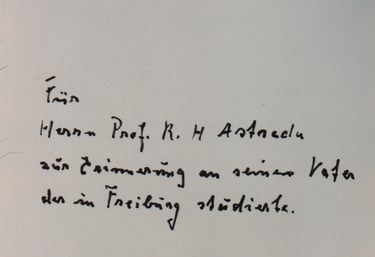 Für
Herrn Prof. R. H Astrada
zur Erinnerung an seinen Vater
der in Freiburg studierte.